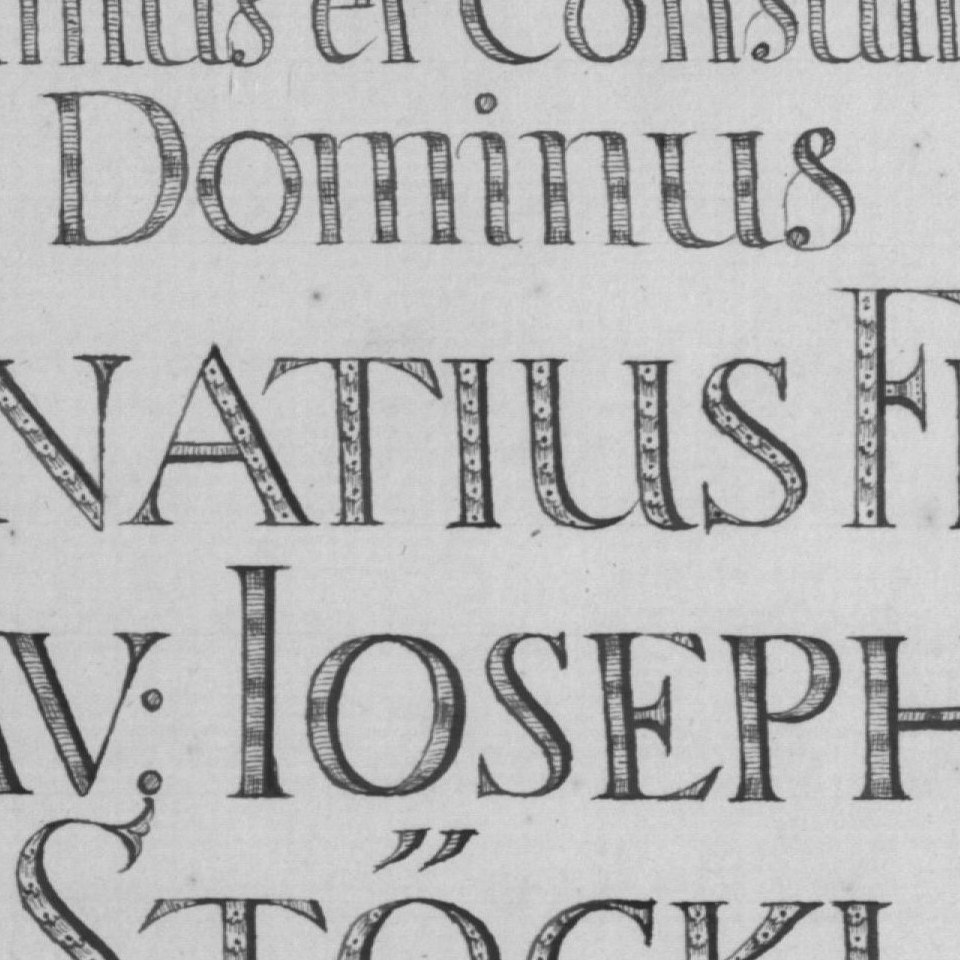 imus et Consul
Dominus
NATIUS F
AV: IOSEPH
STÖCKL